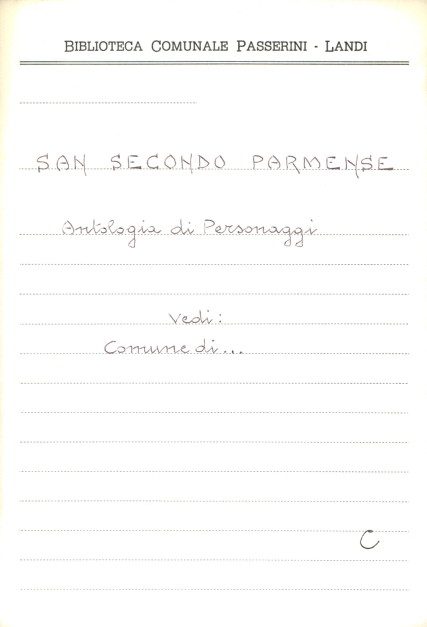 BIBLIOTECA COMUNALE PASSERINI - LANDI
SAN SECONDO PARMENSE
Antologia di Personaggi
Vedi:
Comune di...
C